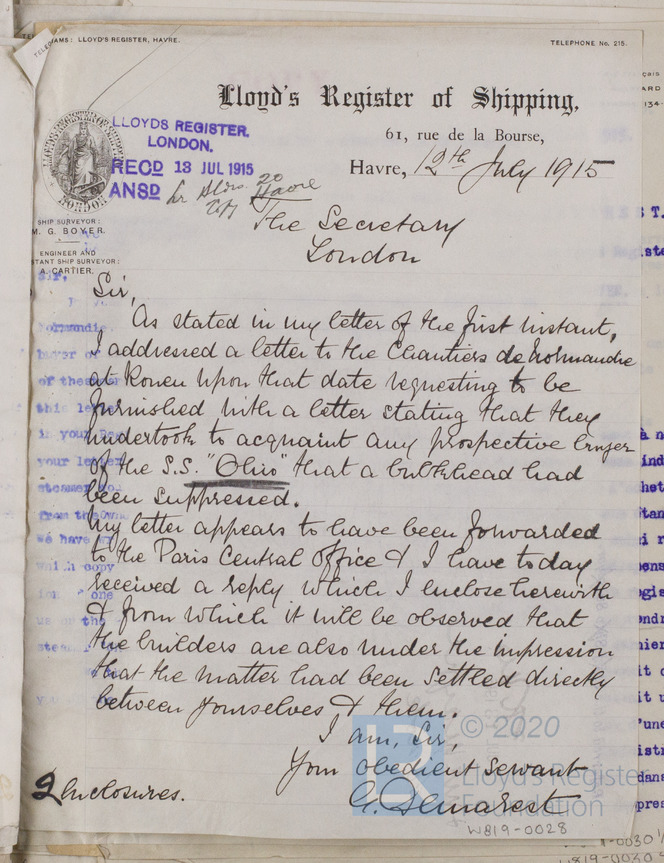 TELEGRAMS: LLOYD'S REGISTER, HAVRE.
TELEPHONE No. 215.
Lloyd's Register of Shipping,
61, rue de la Bourse,
Havre, 12th July 1915
LLOYDS REGISTER.
LONDON.
RECD 13 JUL 1915
ANSD
Havre
LONDON
SHIP SURVEYOR:
M. G. BOYER.
ENGINEER AND
TANT SHIP SURVEYOR:
A. CARTIER.
The Secretary
London
Sir,
As stated in my letter of the first instant,
I addressed a letter to the Chantiers de Normandie
at Rouen upon that date requesting to be
furnished with a letter stating that they
undertook to acquaint any prospective buyer
of the S.S. "Ohio" that a bulkhead had
been suppressed.
My letter appears to have been forwarded
to the Paris Central Office & I have today
received a reply which I enclose herewith
& from which it will be observed that
the builders are also under the impression
that the matter had been settled directly
between yourselves & them.
I am, Sir,
Your obedient servant
2 enclosures.
© 2020
Lloyd's Register
Foundation
W819-0028